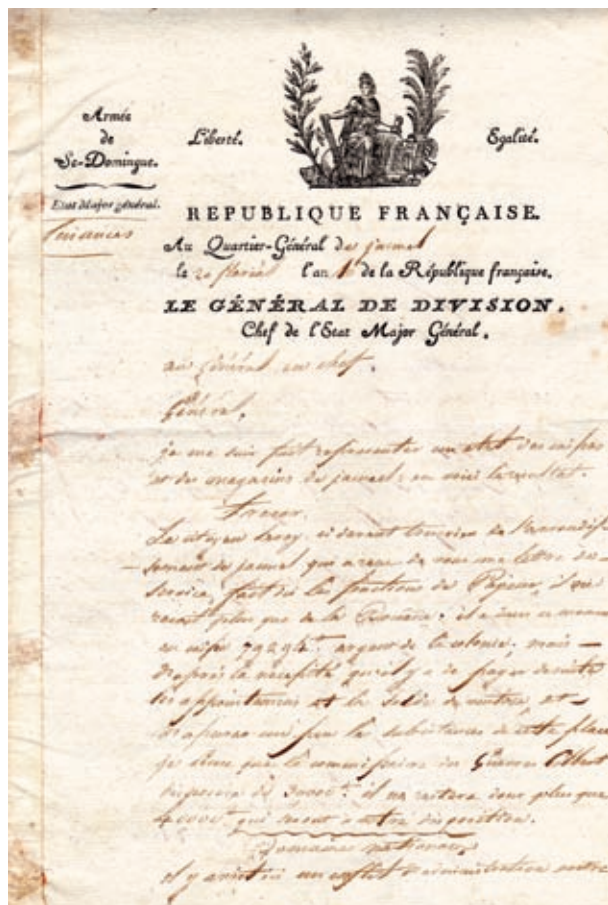 Armée
de
St-Domingue.
Etat Major général.
finances
Liberté. Egalité.
REPUBLIQUE FRANÇAISE.
Au Quartier-Général de jacmel
le 20 floréal l'an de la République française.
LE GÉNÉRAL DE DIVISION,
Chef de l'Etat Major Général.
au Général en chef.
Général,
je me suis fait représenter un état des caisses
et des magasins de jacmel; en voici le résultat.
Le citoyen ci devant de l'arrondis-
sement de jacmel qui a reçu de vous une lettre de
service, fait ici les fonctions de Payeur, il ne
plus que de la il a dans ce moment
en caisse argent de la colonie; mais
d'après la nécessité qu'il y a de payer de suite
les appointemens et la solde et
un peu les subsistances de cette place
je pense que le commissaire des Guerres
disposera de 3000ᵗ. il ne restera donc plus que
4000ᵗ qui seront à votre disposition.
Domaines nationaux
il y avait ici un conflit d'administration entre